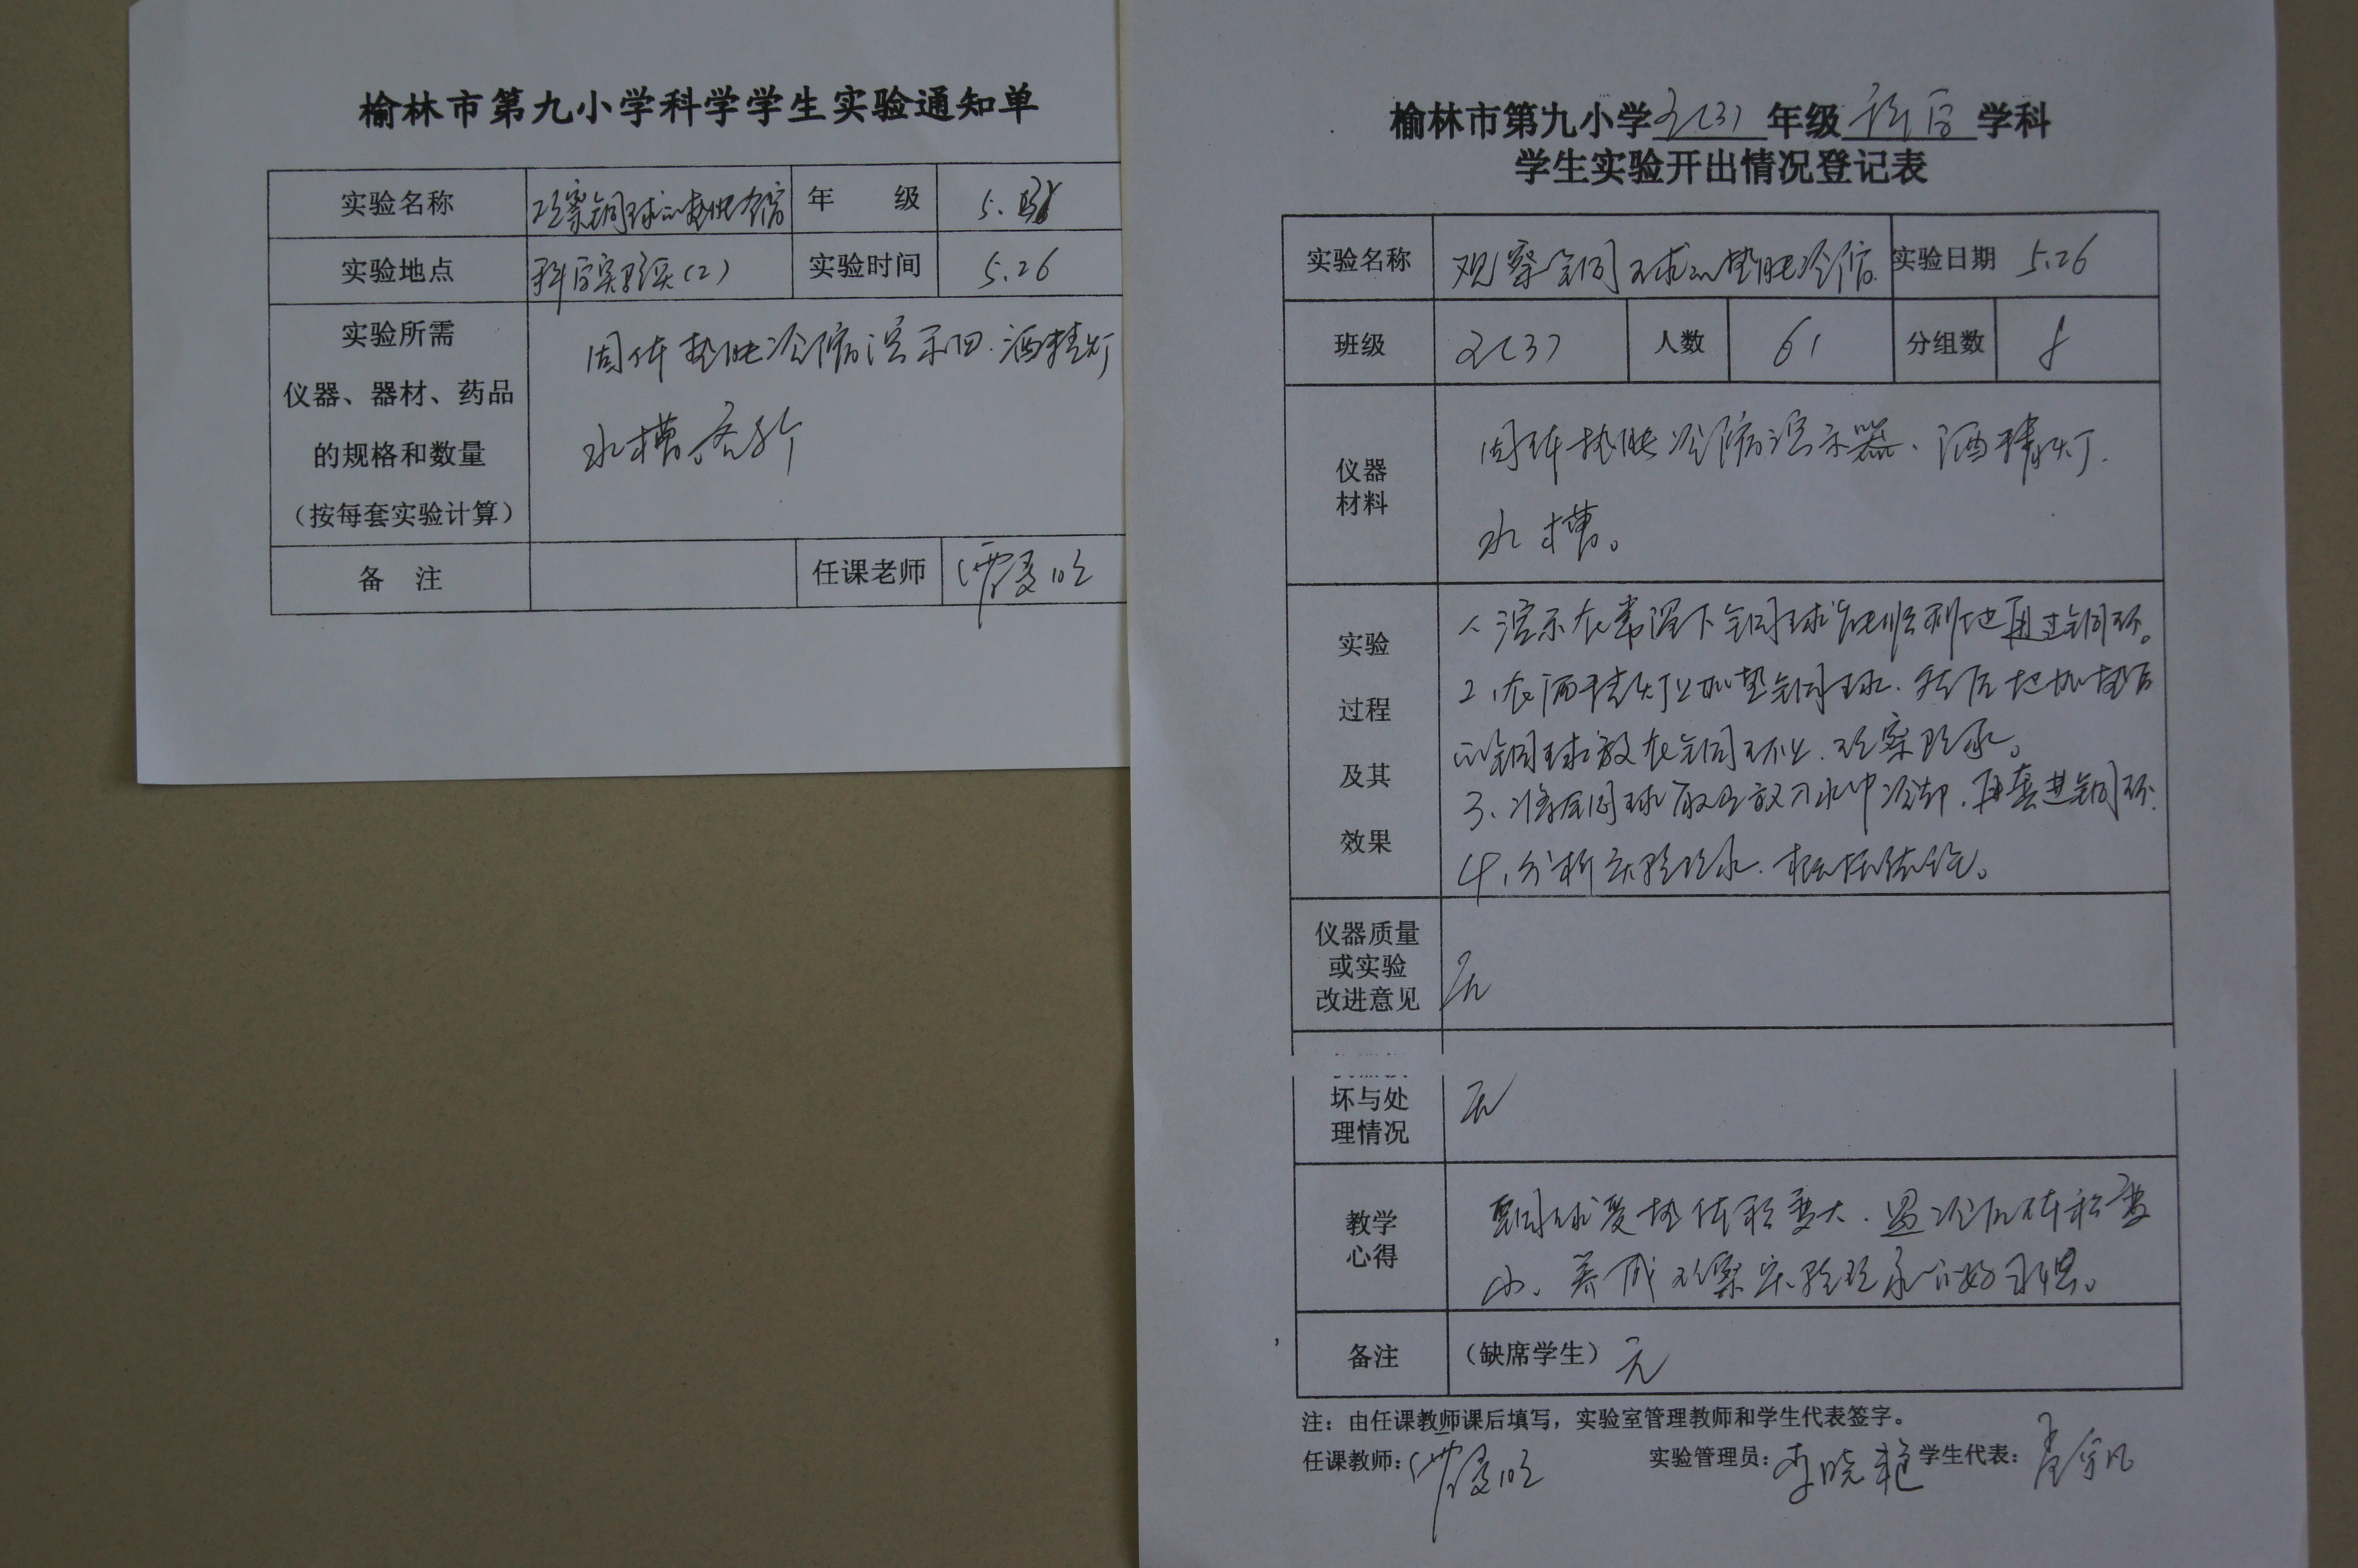 榆林市第九小学科学学生实验通知单
实验名称 观察铜球的热胀冷缩 年 级 5.
实验地点 科学实验室(2) 实验时间 5.26
实验所需
仪器、器材、药品
的规格和数量
（按每套实验计算）
固体热胀冷缩演示四.酒精灯
水槽.各8个
备 注 任课老师
榆林市第九小学 五(3) 年级 科学 学科
学生实验开出情况登记表
实验名称 观察铜球的热胀冷缩. 实验日期 5.26
班级 五(3) 人数 61 分组数 8
仪器
材料
固体热胀冷缩演示器、酒精灯.
水槽。
实验
过程
及其
效果
1、演示在常温下铜球能顺利地通过铜环。
2、在酒精灯上加热铜球.然后把加热后
的铜球放在铜环上.观察现象。
3、将铜球取下放入水中冷却.再套进铜环.
4、分析实验现象.概括结论。
仪器质量
或实验
改进意见
无
坏与处
理情况
无
教学
心得
铜球受热体积变大.遇冷后体积变
小、养成观察实验现象的好习惯。
备注 （缺席学生） 无
注：由任课教师课后填写，实验室管理教师和学生代表签字。
任课教师: 实验管理员: 李晓艳 学生代表: